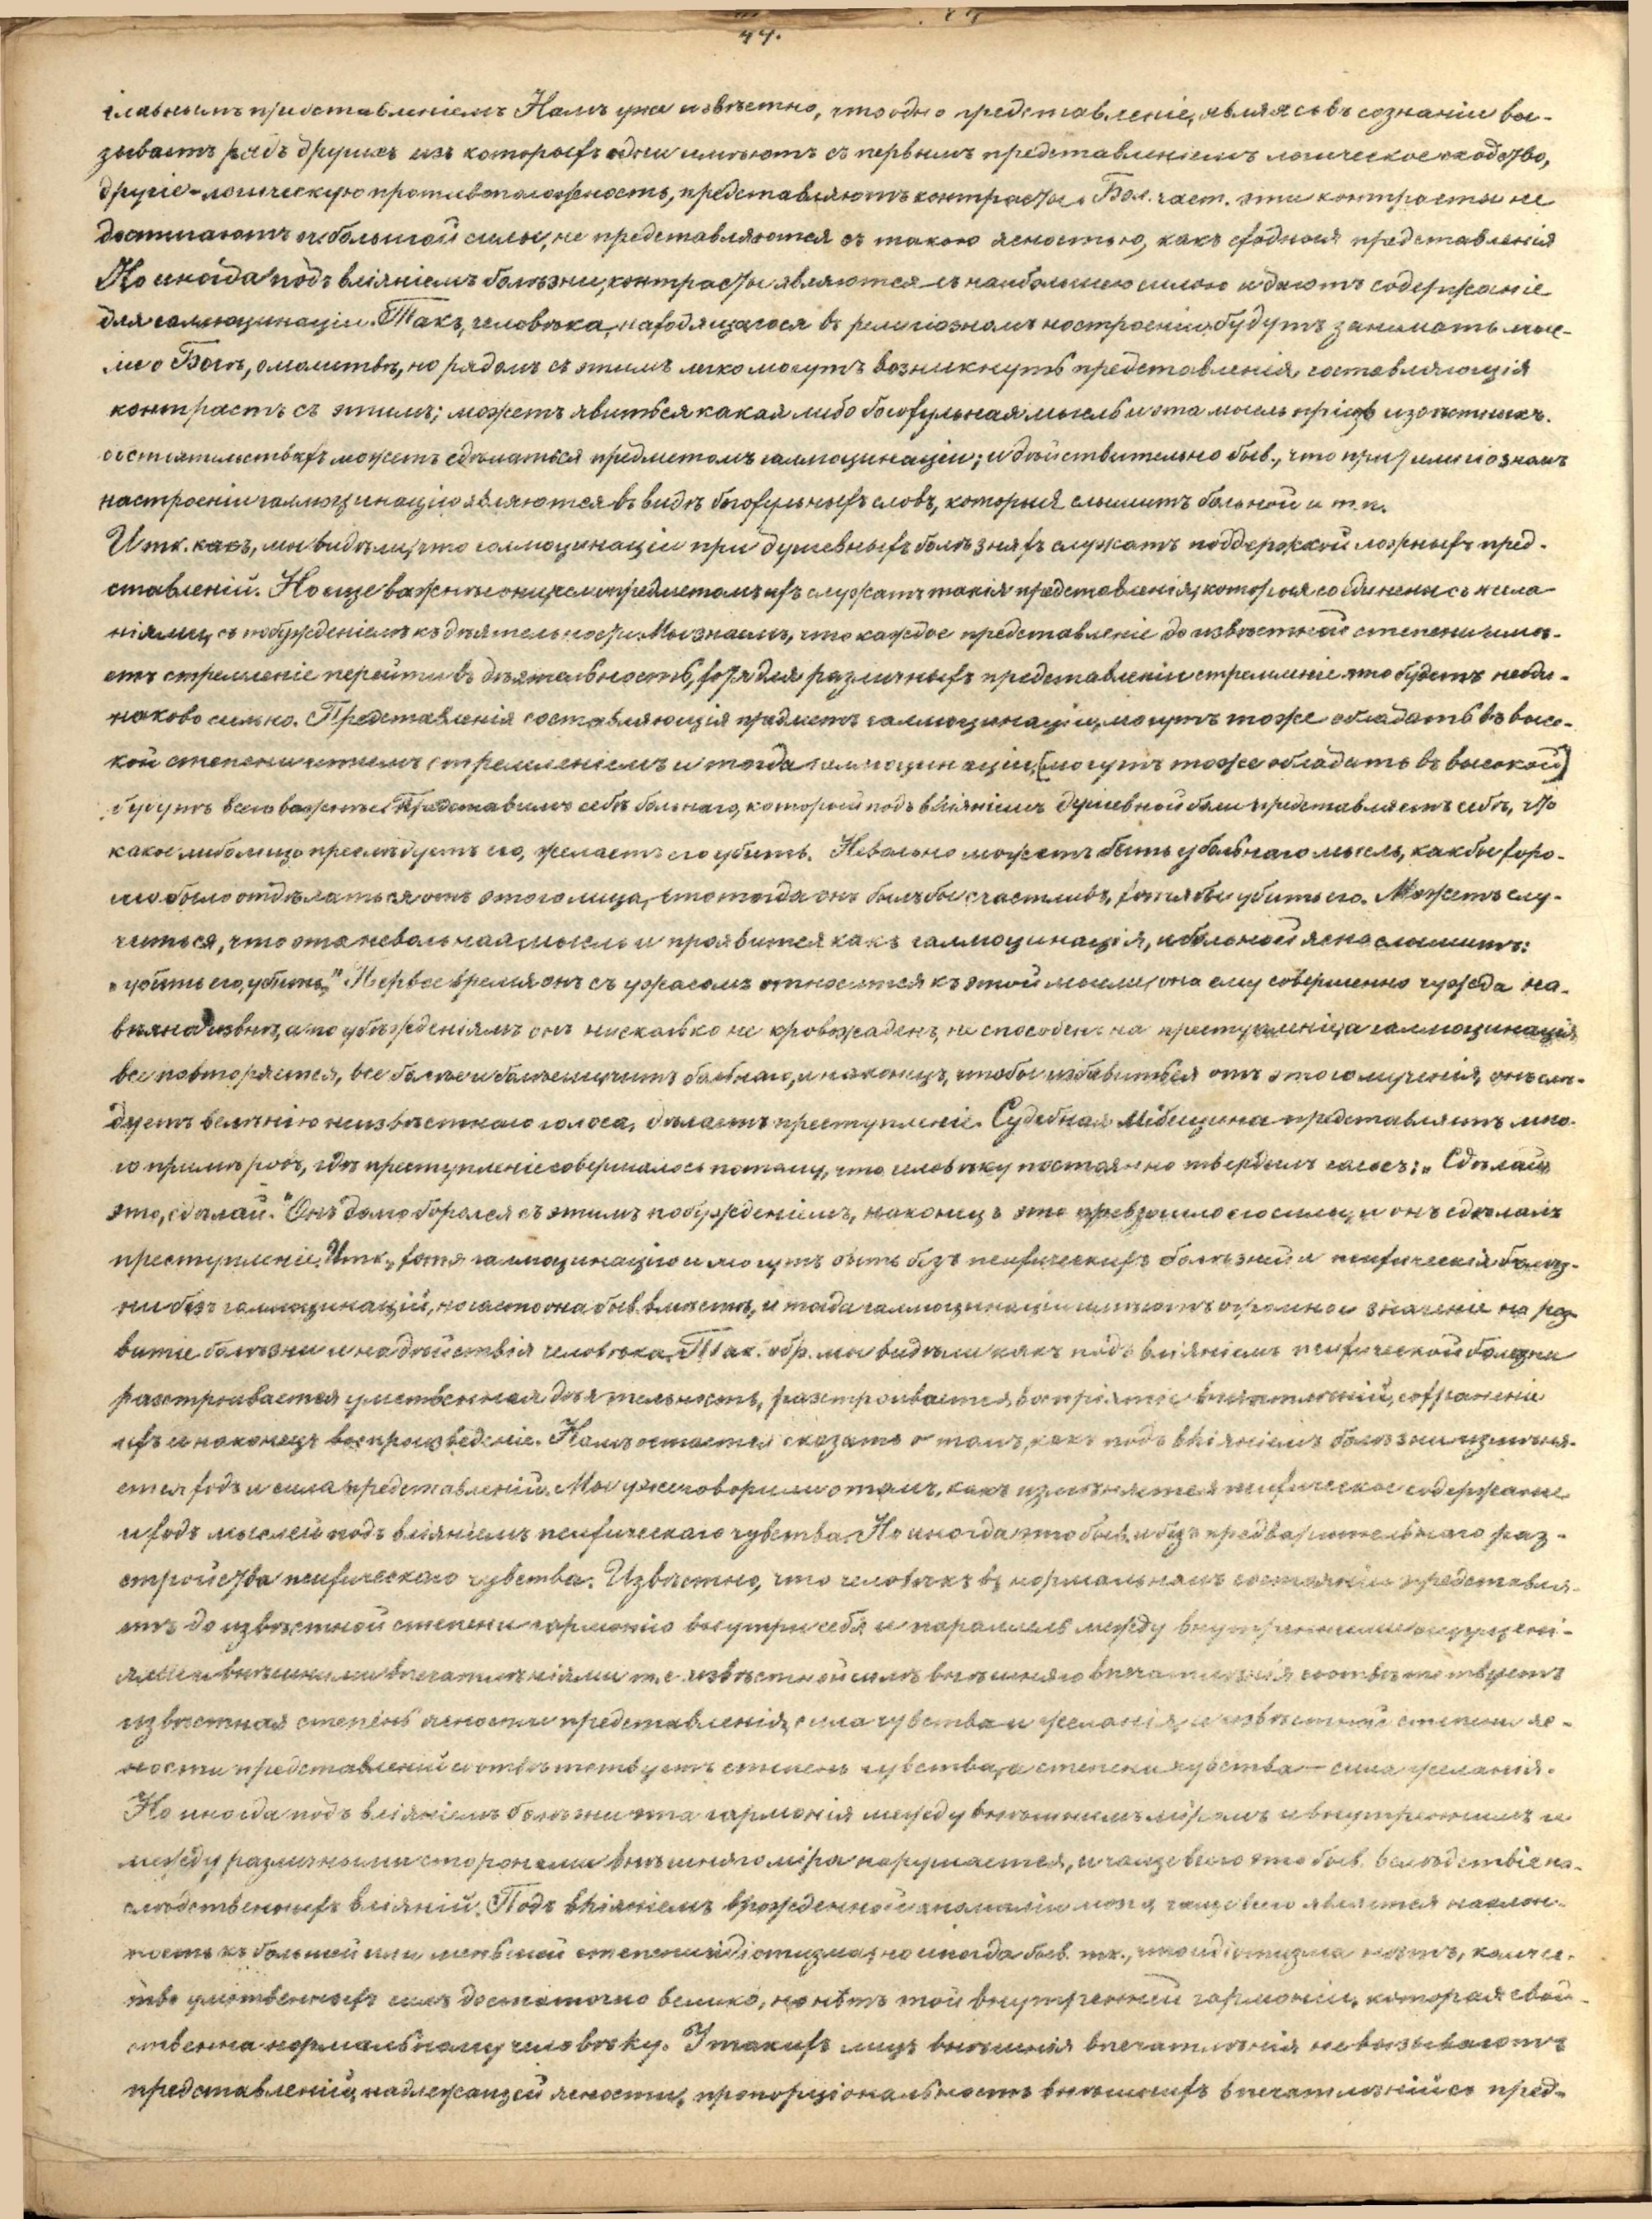 44.
главнымъ представленіемъ Намъ уже извѣстно, что одно представленіе, являясь въ сознаніи вы-
зываетъ рядъ другихъ изъ которыхъ одни имѣютъ съ первымъ представленіемъ логическое сходство,
другіе - логическую противоположность, представляютъ контрасты. Бол. част. эти контрасты не
достигаютъ большой силы, не представляются съ такою ясностью, какъ сходныя представленія
Но иногда подъ вліяніемъ болѣзни, контрасты являются съ наибольшею силою и даютъ содержаніе
для галлюцинаціи. Такъ, человѣка, находящагося въ религіозномъ настроеніи будутъ занимать мыс-
ли о Богѣ, о молитвѣ, но рядомъ съ этимъ легко могутъ возникнуть представленія, составляющія
контрастъ съ этимъ; можетъ явиться какая либо богохульная мысль и эта мысль при извѣстныхъ.
обстоятельствахъ можетъ сдѣлаться предметомъ галлюцинаціи; и дѣйствительно быв., что при религіозномъ
настроеніи галлюцинаціи являются въ видѣ богохульныхъ словъ, которыя слышитъ больной и т. п.
Итк. какъ, мы видѣли, что галлюцинаціи при душевныхъ болѣзняхъ служатъ поддержкой ложныхъ пред-
ставленій. Но еще важнѣе они, если предметомъ ихъ служатъ такія представленія, которыя соединены съ жела-
ніями, съ побужденіемъ къ дѣятельности. Мы знаемъ, что каждое представленіе до извѣстной степени имѣ-
етъ стремленіе перейти въ дѣятельность, хотя для различныхъ представленій стремленіе это будетъ неоди-
наково сильно. Представленія составляющія предметъ галлюцинаціи, могутъ тоже обладать въ высо-
кой степени этимъ стремленіемъ и тогда галлюцинаціи, (могутъ тоже обладать въ высокой)
будутъ всего важнѣе. Представимъ себѣ больнаго, который подъ вліяніемъ душевной боли представляетъ себѣ, что
какое либо лицо преслѣдуетъ его, желаетъ его убить. Невольно можетъ быть у больнаго мысль, какъ бы хоро-
шо было отдѣлаться отъ этого лица, что тогда онъ былъ бы счастливъ, хотя бы убить его. Можетъ слу-
читься, что эта невольная мысль и проявится какъ галлюцинація, и больной ясно слышитъ:
„убить его, убить." Первое время онъ съ ужасомъ относится къ этой мысли, она ему совершенно чужда на-
вѣяна извнѣ, а по убѣжденіямъ онъ нисколько не кровожаденъ, не способенъ на преступленіе, а галлюцинація
все повторяется, все болѣе и болѣе мучитъ больнаго, и наконецъ, чтобы избавиться отъ этого мученія, онъ слѣ-
дуетъ велѣнію неизвѣстнаго голоса, дѣлаетъ преступленіе. Судебная Медицина представляетъ мно-
го примѣровъ, гдѣ преступленіе совершалось потому, что человѣку постоянно твердилъ голосъ: „Сдѣлай
это, сдѣлай." Онъ долго боролся съ этимъ побужденіемъ, наконецъ это превзошло его силы, и онъ сдѣлалъ
преступленіе. Итк., хотя галлюцинаціи и могутъ быть безъ психическихъ болѣзней и психическія болѣз-
ни безъ галлюцинацій, но часто она быв. вмѣстѣ, и тогда галлюцинаціи имѣютъ огромное значеніе на раз-
витіе болѣзни и на дѣйствія человѣка. Так. обр. мы видѣли какъ подъ вліяніемъ психической болезни
разстроивается умственная дѣятельность, разстроивается воспріятіе впечатлѣній, сохраненіе
ихъ и наконецъ воспроизведеніе. Намъ остается сказать о томъ, какъ подъ вліяніемъ болѣзни измѣня-
ется ходъ и сила представленій. Мы уже говорили о томъ, какъ измѣняется психическое содержаніе
и ходъ мыслей подъ вліяніемъ психическаго чувства. Но иногда это быв. и безъ предварительнаго раз-
стройства психическаго чувства. Извѣстно, что человѣкъ въ нормальномъ состояніи представля-
етъ до извѣстной степени гармонію внутри себя и параллель между внутренними ощущені-
ями и внѣшними впечатлѣніями т. е. извѣстной силѣ внѣшняго впечатлѣнія соотвѣтствуетъ
извѣстная степень ясности представленія, сила чувства и желанія, и извѣстной степени яс-
ности представленій соотвѣтствуетъ степень чувства, а степени чувства - сила желанія.
Но иногда подъ вліяніемъ болѣзни эта гармонія между внѣшнимъ міромъ и внутреннимъ и
между различными сторонами внѣшняго міра нарушается, и чаще всего это быв. вслѣдствіе на-
слѣдственныхъ вліяній. Подъ вліяніемъ врожденной аномаліи мозга чаще всего является наклон-
ность къ большей или меньшей степени идіотизма, но иногда быв. тк., что идіотизма нѣтъ, количе-
ство умственныхъ силъ достаточно велико, но нѣтъ той внутренней гармоніи, которая свой-
ственна нормальному человѣку. У такихъ лицъ внѣшнія впечатлѣнія не вызываютъ
представленій надлежащей ясности, пропорціональность внѣшнихъ впечатлѣній съ пред-